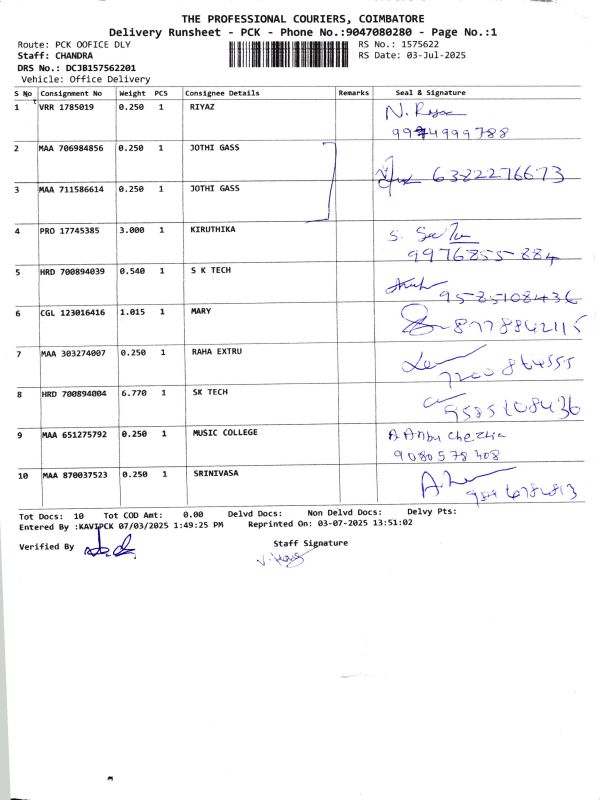 THE PROFESSIONAL COURIERS, COIMBATORE
Delivery Runsheet - PCK - Phone No.:9047080280 - Page No.:1
Route: PCK OOFICE DLY
RS No.: 1575622
Staff: CHANDRA
RS Date: 03-Jul-2025
DRS No.: DCJB157562201
Vehicle: Office Delivery
S No Consignment No Weight PCS Consignee Details Remarks Seal & Signature
1 VRR 1785019 0.250 1 RIYAZ N. Riyaz
9994999788
2 MAA 706984856 0.250 1 JOTHI GASS
6382276673
3 MAA 711586614 0.250 1 JOTHI GASS
4 PRO 17745385 3.000 1 KIRUTHIKA S.
9976855884
5 HRD 700894039 0.540 1 S K TECH
9585108436
6 CGL 123016416 1.015 1 MARY
8778842115
7 MAA 303274007 0.250 1 RAHA EXTRU
7200864555
8 HRD 700894004 6.770 1 SK TECH
9585108436
9 MAA 651275792 0.250 1 MUSIC COLLEGE A Anbu Chezhia
9080578408
10 MAA 870037523 0.250 1 SRINIVASA
Tot Docs: 10 Tot COD Amt: 0.00 Delvd Docs: Non Delvd Docs: Delvy Pts:
Entered By :KAVIPCK 07/03/2025 1:49:25 PM Reprinted On: 03-07-2025 13:51:02
Verified By
Staff Signature